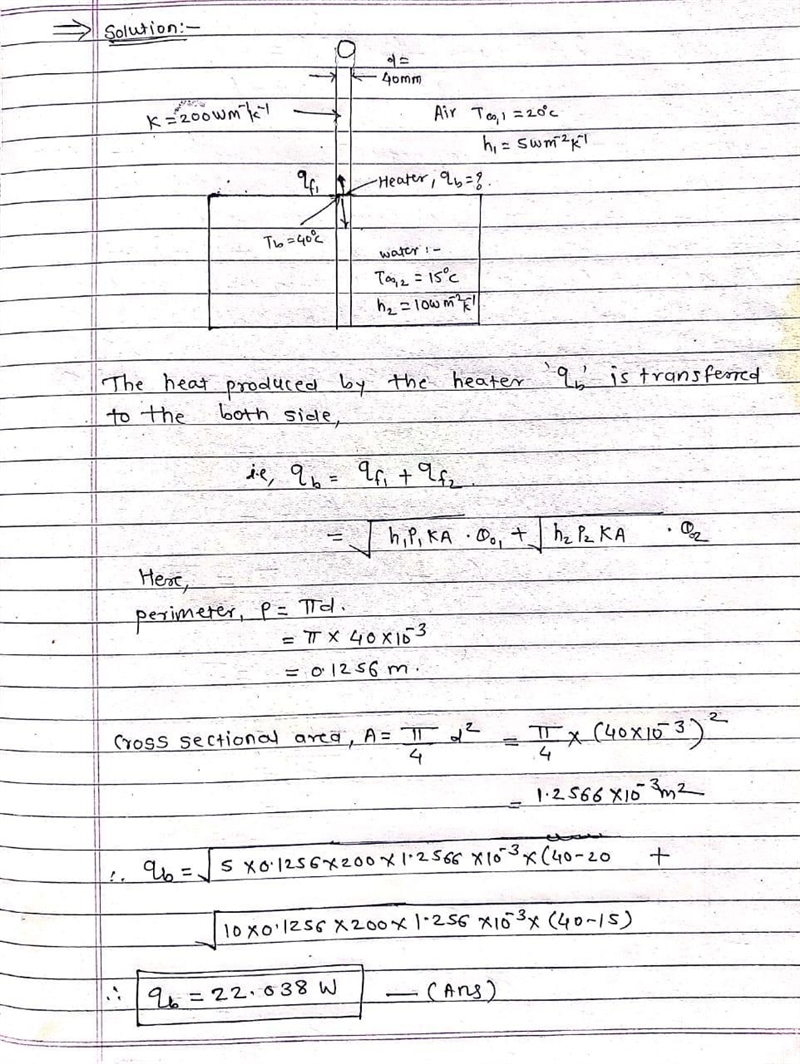 ⇒ Solution:-
d=
40mm
K = 200wm⁻¹k⁻¹
Air T∞,1 = 20°c
h₁ = 5wm⁻²k⁻¹
qf₁
Heater, qb = ?.
Tb = 40°c
water :-
T∞,2 = 15°c
h₂ = 10wm⁻²k⁻¹
The heat produced by the heater 'qb' is transferred
to the both side,
i.e, qb = qf₁ + qf₂.
= √h₁P₁KA · Θ₀₁ + √h₂P₂KA · Θ₀₂
Here,
perimeter, P = πd.
= π × 40×10⁻³
= 0.1256 m.
Cross sectional area, A = π/4 d² = π/4 × (40×10⁻³)²
= 1.2566 ×10⁻³m²
∴ qb = √5 ×0.1256×200×1.2566 ×10⁻³×(40-20 +
√10×0.1256 ×200× 1.256 ×10⁻³× (40-15)
∴ qb = 22.038 W — (Ans)